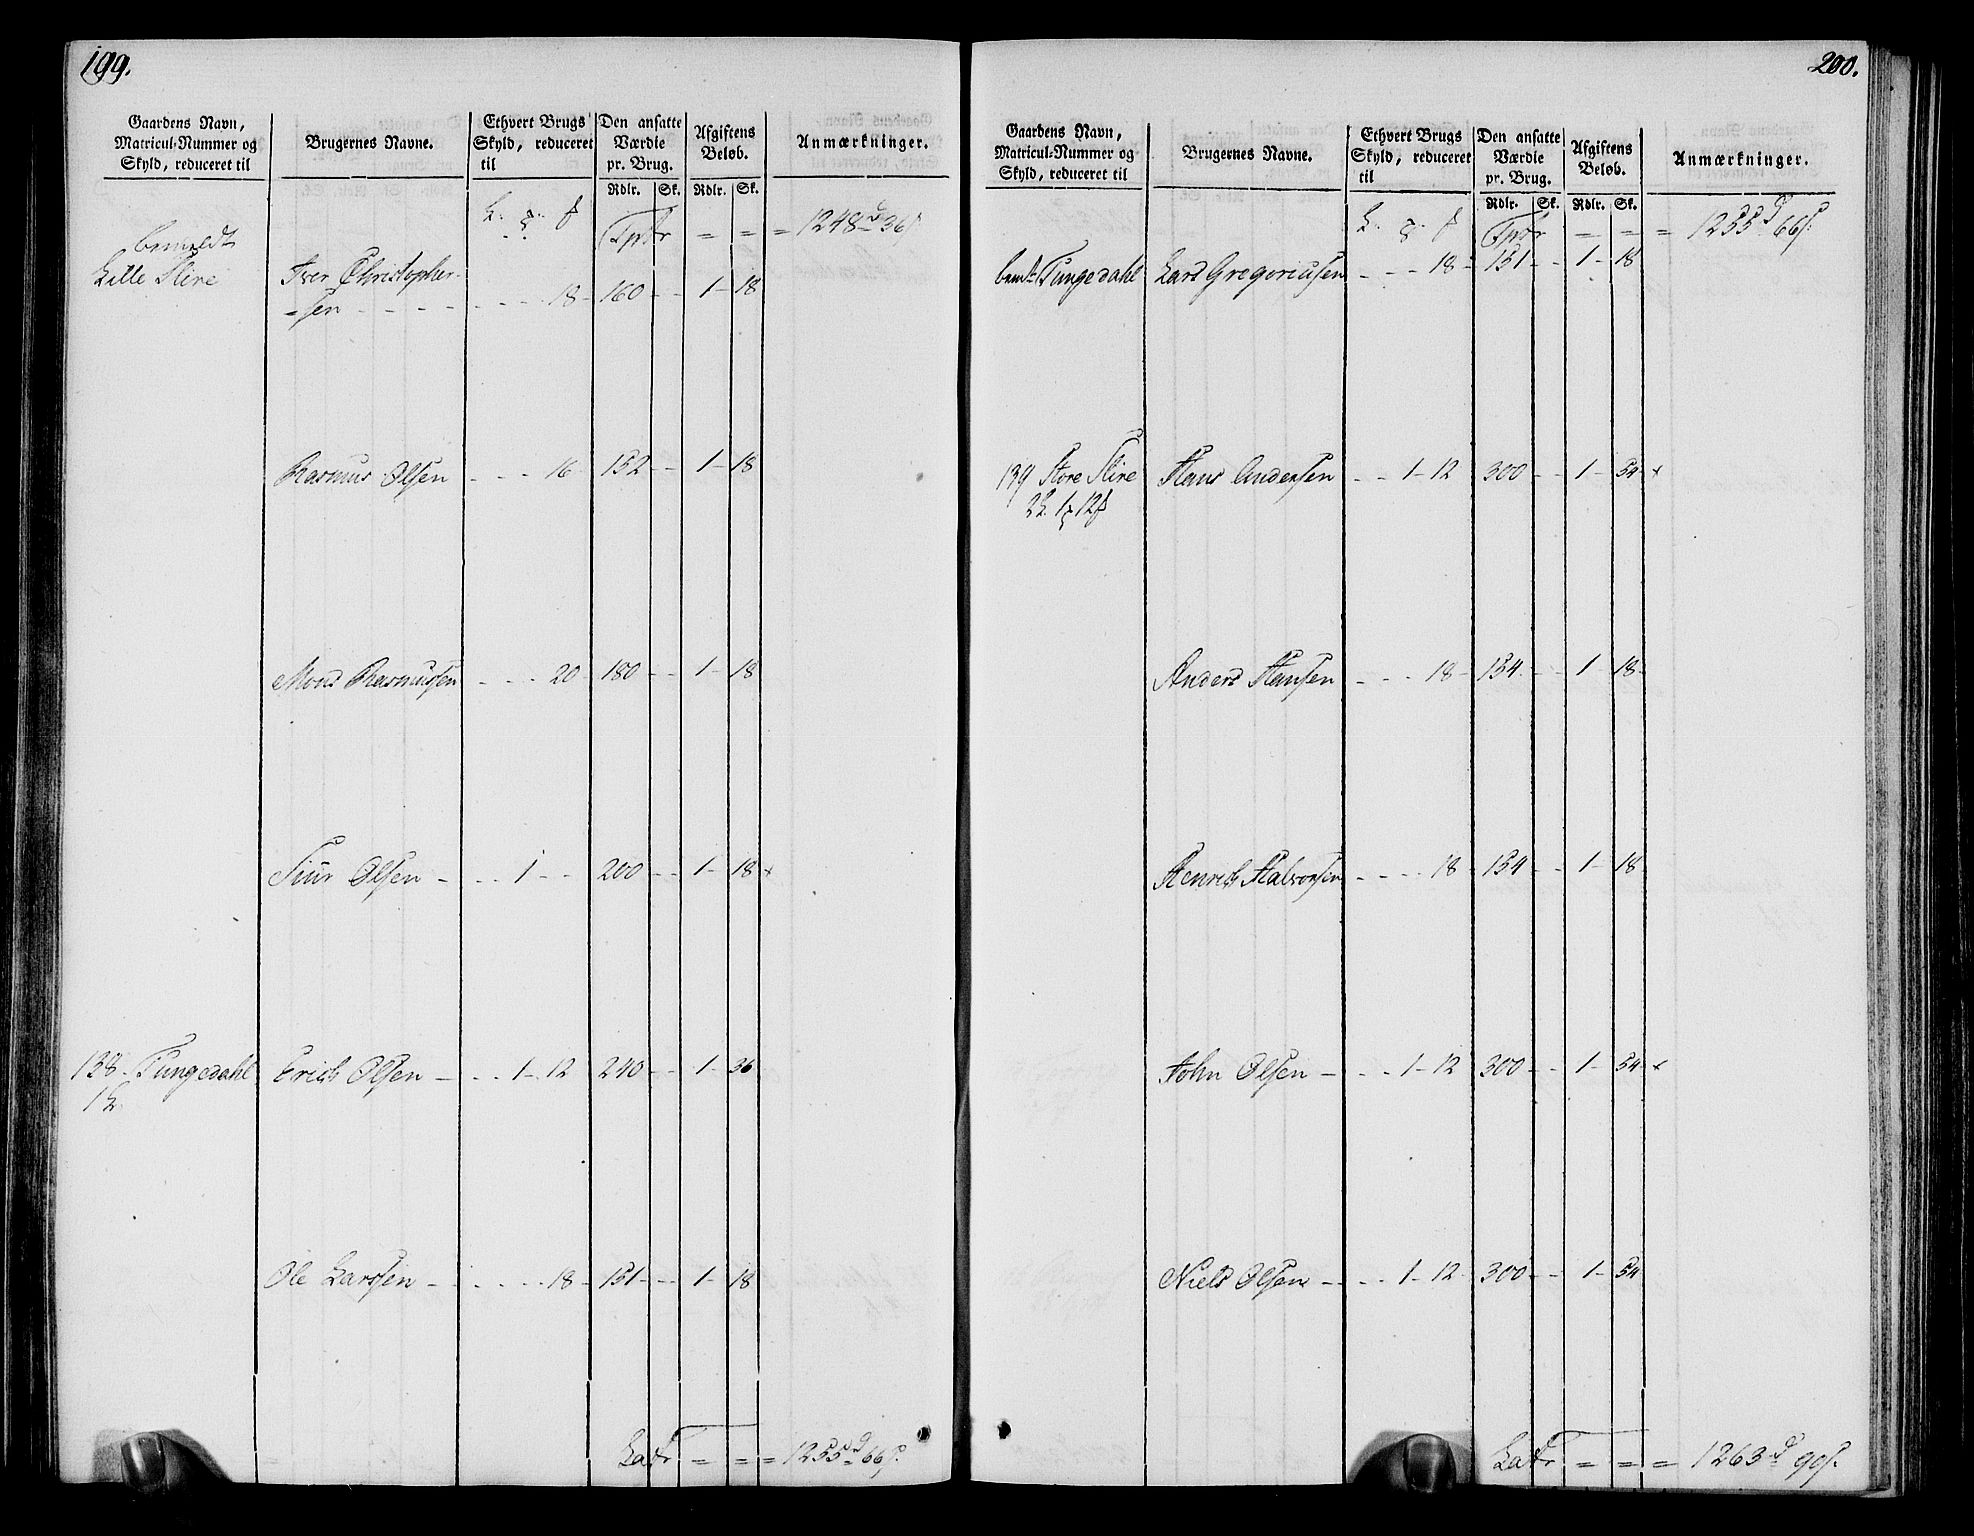 199.
Gaardens Navn,
Matricul-Nummer og
Skyld, reduceret til
Brugernes Navne.
Ethvert Brugs
Skyld, reduceret
til
Den ansatte
Værdie
pr. Brug.
Afgiftens
Beløb.
Anmærkninger.
Rdlr. Sk. Rdlr. Sk.
Tpdr = = = 1248 d 36 s
bemeldt
Lille Slire Iver Christopher-
-sen - - - - - - - 18 - 160 - - 1 - 18
Rasmus Olsen - - - 16 152 - - 1 - 18
Mons Rasmussen - - - 20 - 180 - - 1 - 18
Siur Olsen - - - 1 - - 200 - - 1 - 18 x
138 - Tungedahl Erich Olsen - - - 1 - 12 240 - - 1 - 36
1 L.
Ole Larssen - - - - - 18 - 151 - - 1 - 18
Latr = = = 1255 d 66 s.
200.
Gaardens Navn,
Matricul-Nummer og
Skyld, reduceret til
Brugernes Navne.
Ethvert Brugs
Skyld, reduceret
til
Den ansatte
Værdie
pr. Brug.
Afgiftens
Beløb.
Anmærkninger.
Rdlr. Sk. Rdlr. Sk.
Tpdr = = = 1255 d 66 s.
bemt. Tungedahl Lars Gregoriussen - - - 18 - 151 - - 1 - 18
139 Store Slire Hans Andersen - - 1 - 12 300 - - 1 - 54 x
2 L. 1 12
Anders Hansen - - - 18 - 154 - - 1 - 18 -
Henrich Halvorsen - - - - 18 - 154 - - 1 - 18
John Olsen - - - 1 - 12 300 - - 1 - 54 x
Niels Olsen - - - 1 - 12 - 300 - - 1 - 54
Latr = = = 1263 d 90 s.